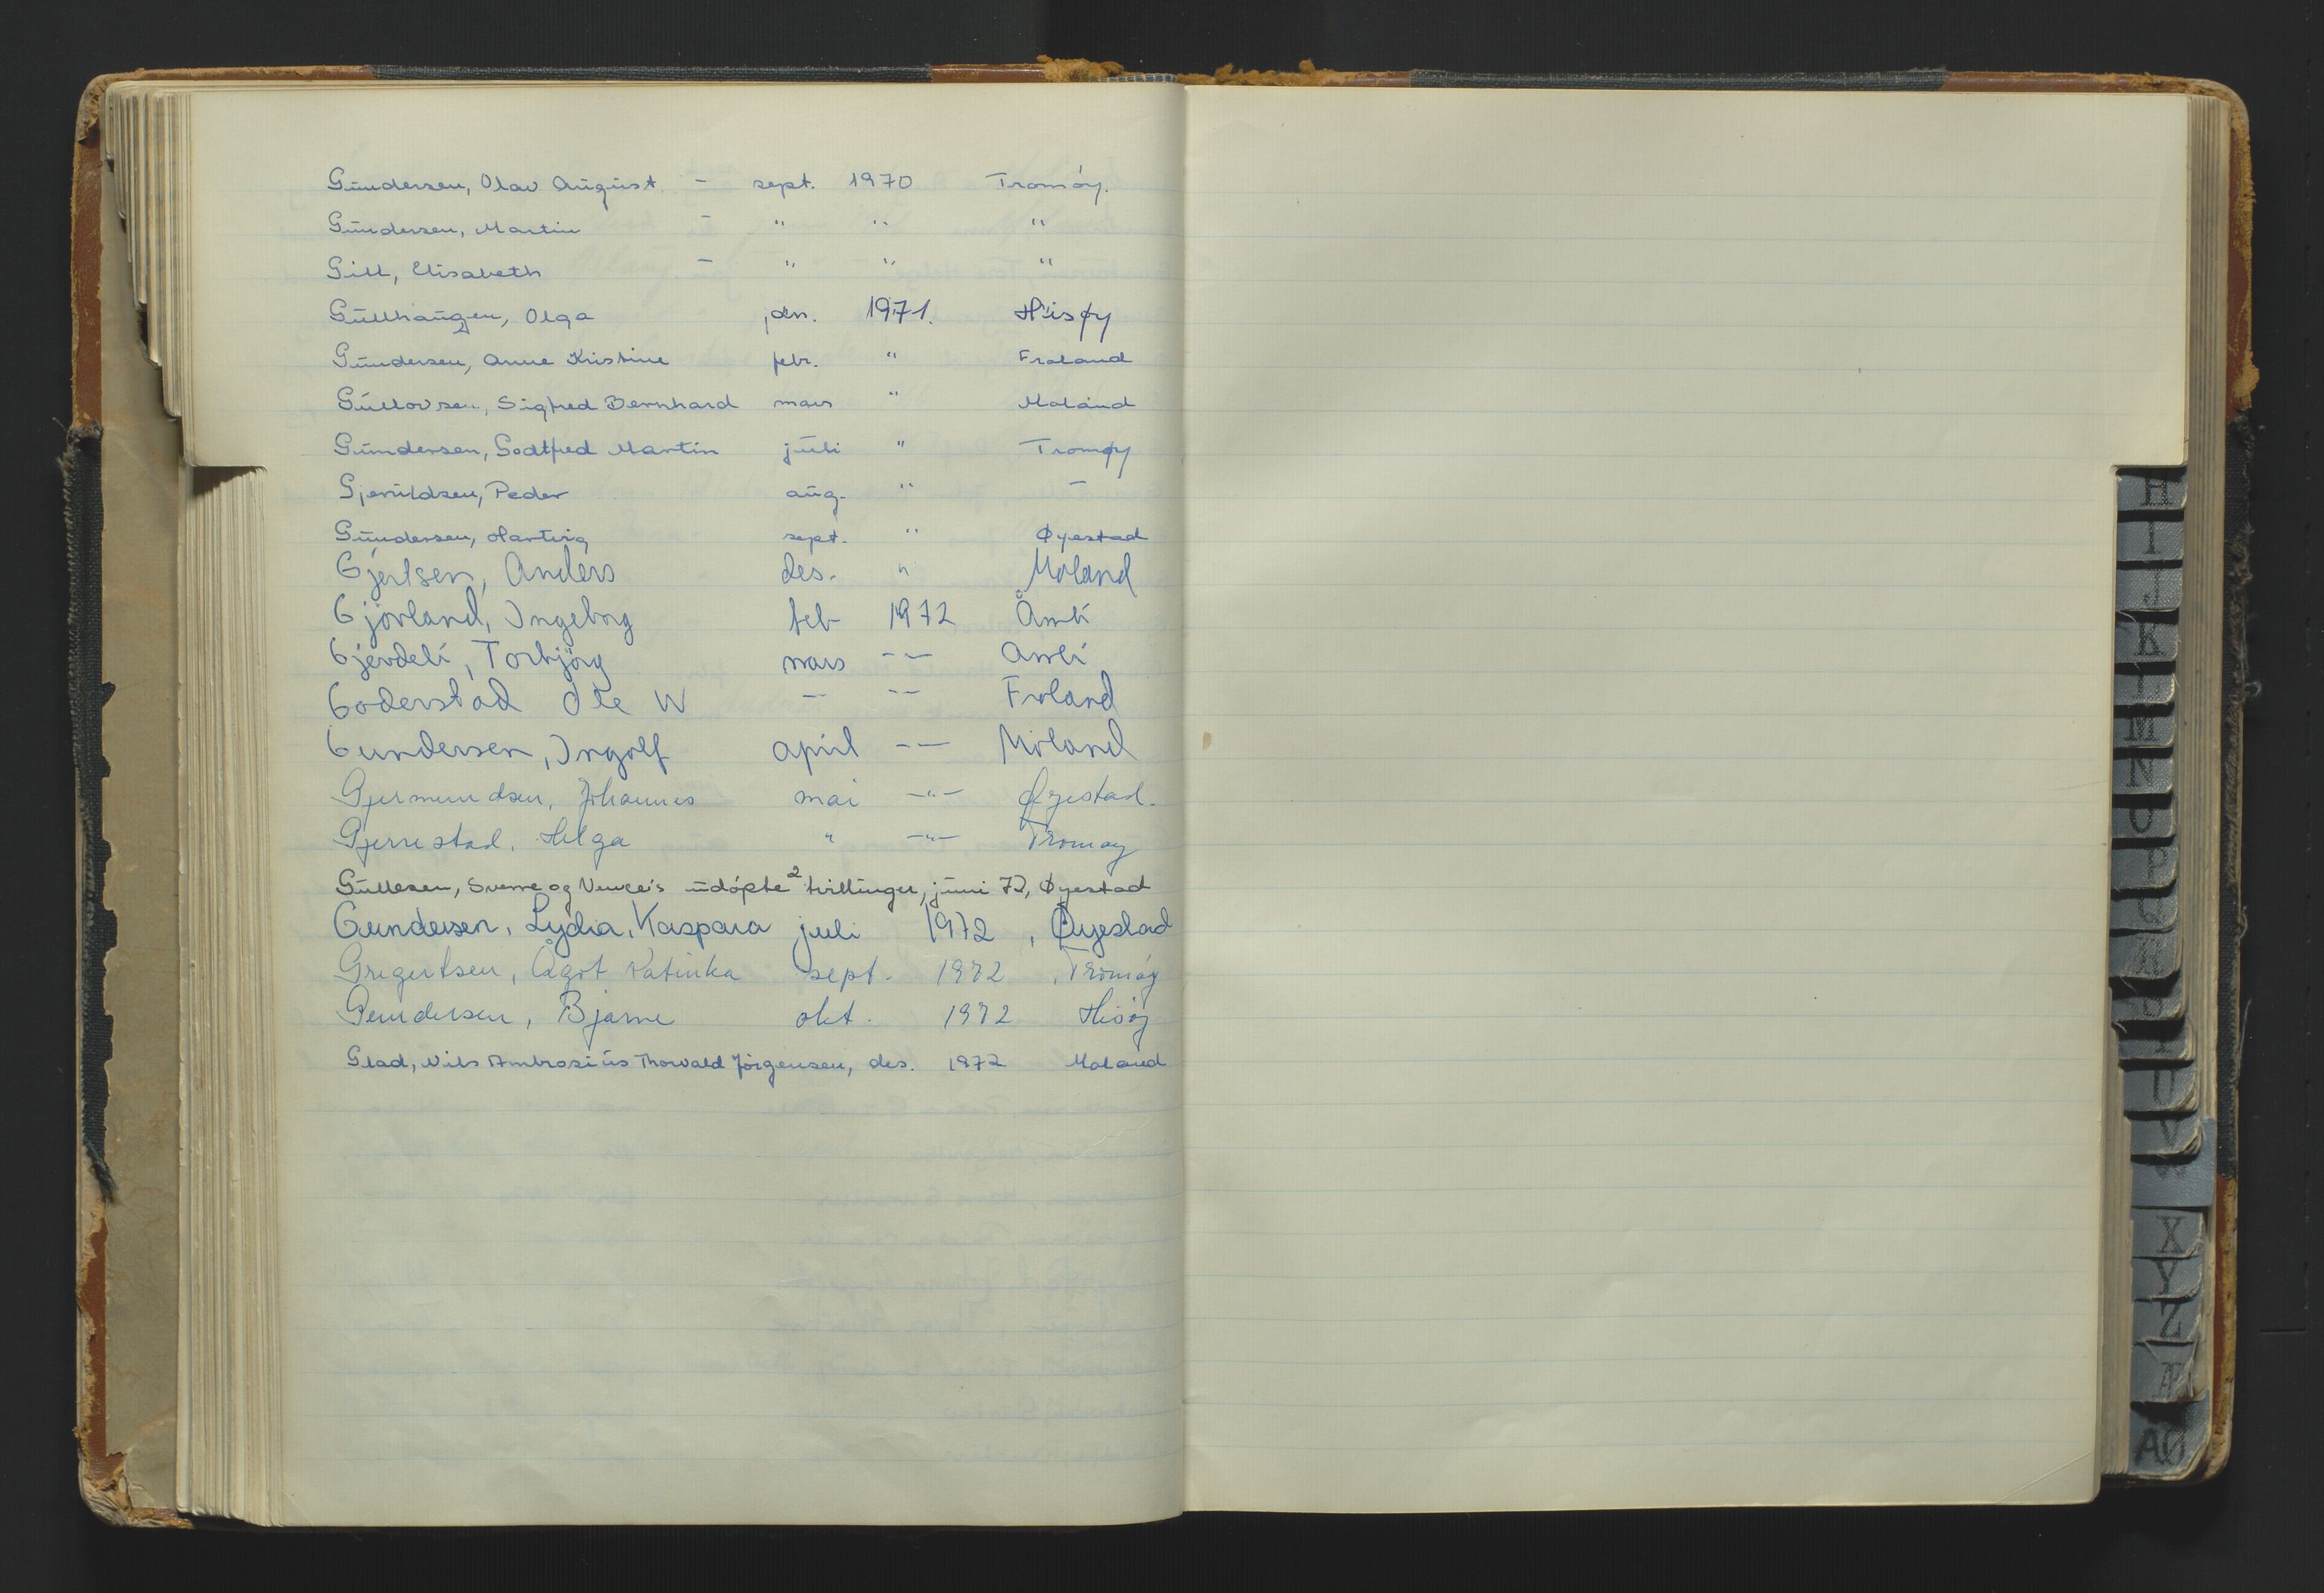 Gundersen, Olav August. - sept. 1970 Tromøy.
Gundersen, Martin - " " "
Gill, Elisabeth - " " "
Gullhaugen, Olga jan. 1971. Hisøy
Gundersen, Anne Kristine febr. " Froland
Gullovsen, Sigfred Bernhard mars " Moland
Gundersen, Godtfred Martin juli " Tromøy
Gjeruldsen, Peder aug. " -
Gundersen, Hartvig sept. " Øyestad
Gjertsen, Anders des. " Moland
Gjövland, Ingeborg feb 1972 Åmli
Gjerdeli, Torbjörg mars -- Åmli
Goderstad Ole W - -- Froland
Gundersen, Ingolf april -- Moland
Gjermundsen, Johannes mai -"- Øyestad.
Gjerrestad, Helga " -"- Tromøy
Gullesen, Sverre og Venke's udøpte 2 tvillinger, juni 72, Øyestad
Gundersen, Lydia, Kaspara juli 1972, Øyestad
Gregertsen, Ågot Katinka sept. 1972, Tromøy
Gundersen, Bjarne okt. 1972 Hisøy
Glad, Nils Ambrosius Thorvald Jörgensen, des. 1972 Moland
H
I
J
K
L
M
N
O
P
Q
R
S
T
U
V
W
X
Y
Z
Æ
AØ